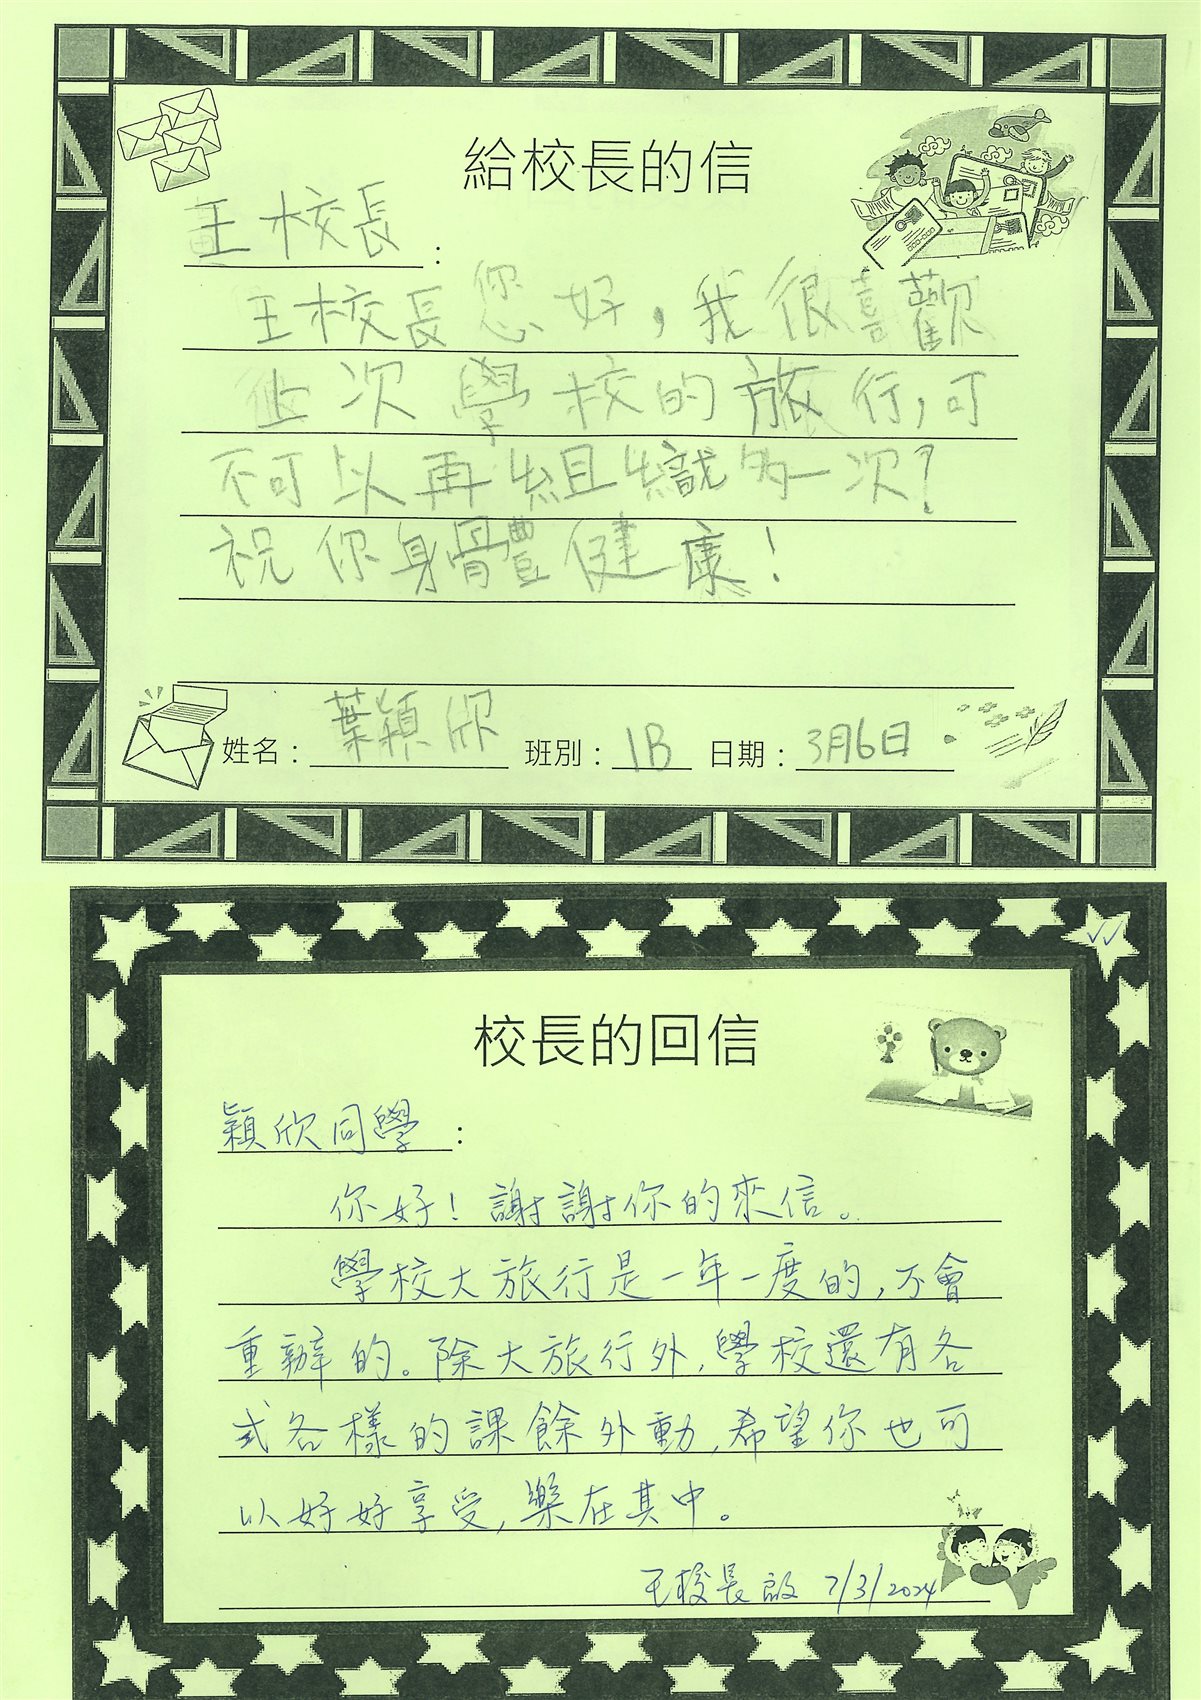 給校長的信
王校長：
王校長您好，我很喜歡
此次學校的旅行，可
不可以再組織多一次？
祝你身體健康！
姓名：葉穎欣 班別：1B 日期：3月6日
校長的回信
穎欣同學：
你好！謝謝你的來信。
學校大旅行是一年一度的，不會
重辦的。除大旅行外，學校還有各
式各樣的課餘外動，希望你也可
以好好享受，樂在其中。
王校長啟 7/3/2024